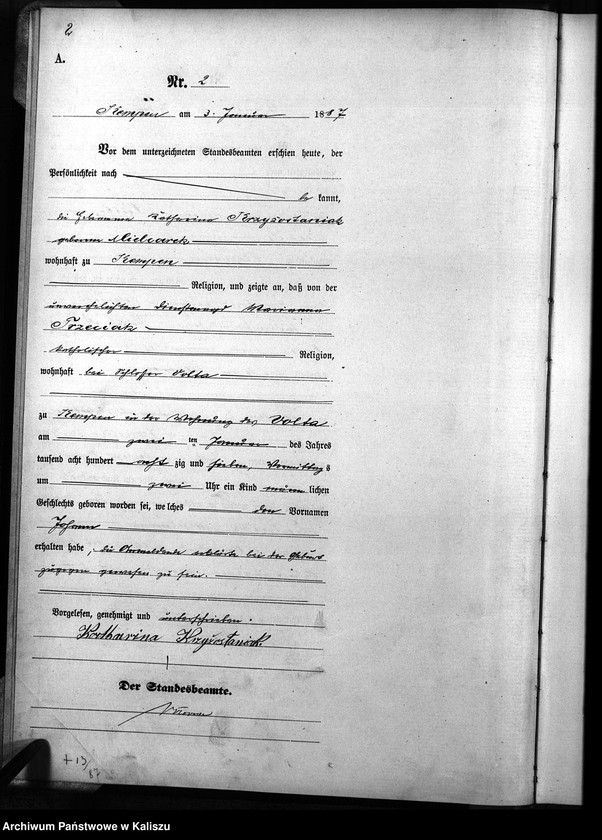 2
A.
Nr. 2
Kempen am 3. Januar 1887
Vor dem unterzeichneten Standesbeamten erschien heute, der
Persönlichkeit nach
be kannt,
die Hebamme Katharina Krzyżostaniak
geborene Michalek
wohnhaft zu Kempen
Religion, und zeigte an, daß von der
unverehelichten Dienstmagd Marianna
Trzeciak
katholischer Religion,
wohnhaft bei Schlosser Volta
zu Kempen in der Wohnung des Volta
am zwei ten Januar des Jahres
tausend acht hundert acht zig und sieben, Vormittag s
um zwei Uhr ein Kind männ lichen
Geschlechts geboren worden sei, welches den Vornamen
Johann
erhalten habe, die Anmeldende erklärte bei der Geburt
zugegen gewesen zu sein.
Vorgelesen, genehmigt und unterschrieben.
Katharina Krzyżostaniak
Der Standesbeamte.
+ 13/87
Archiwum Państwowe w Kaliszu